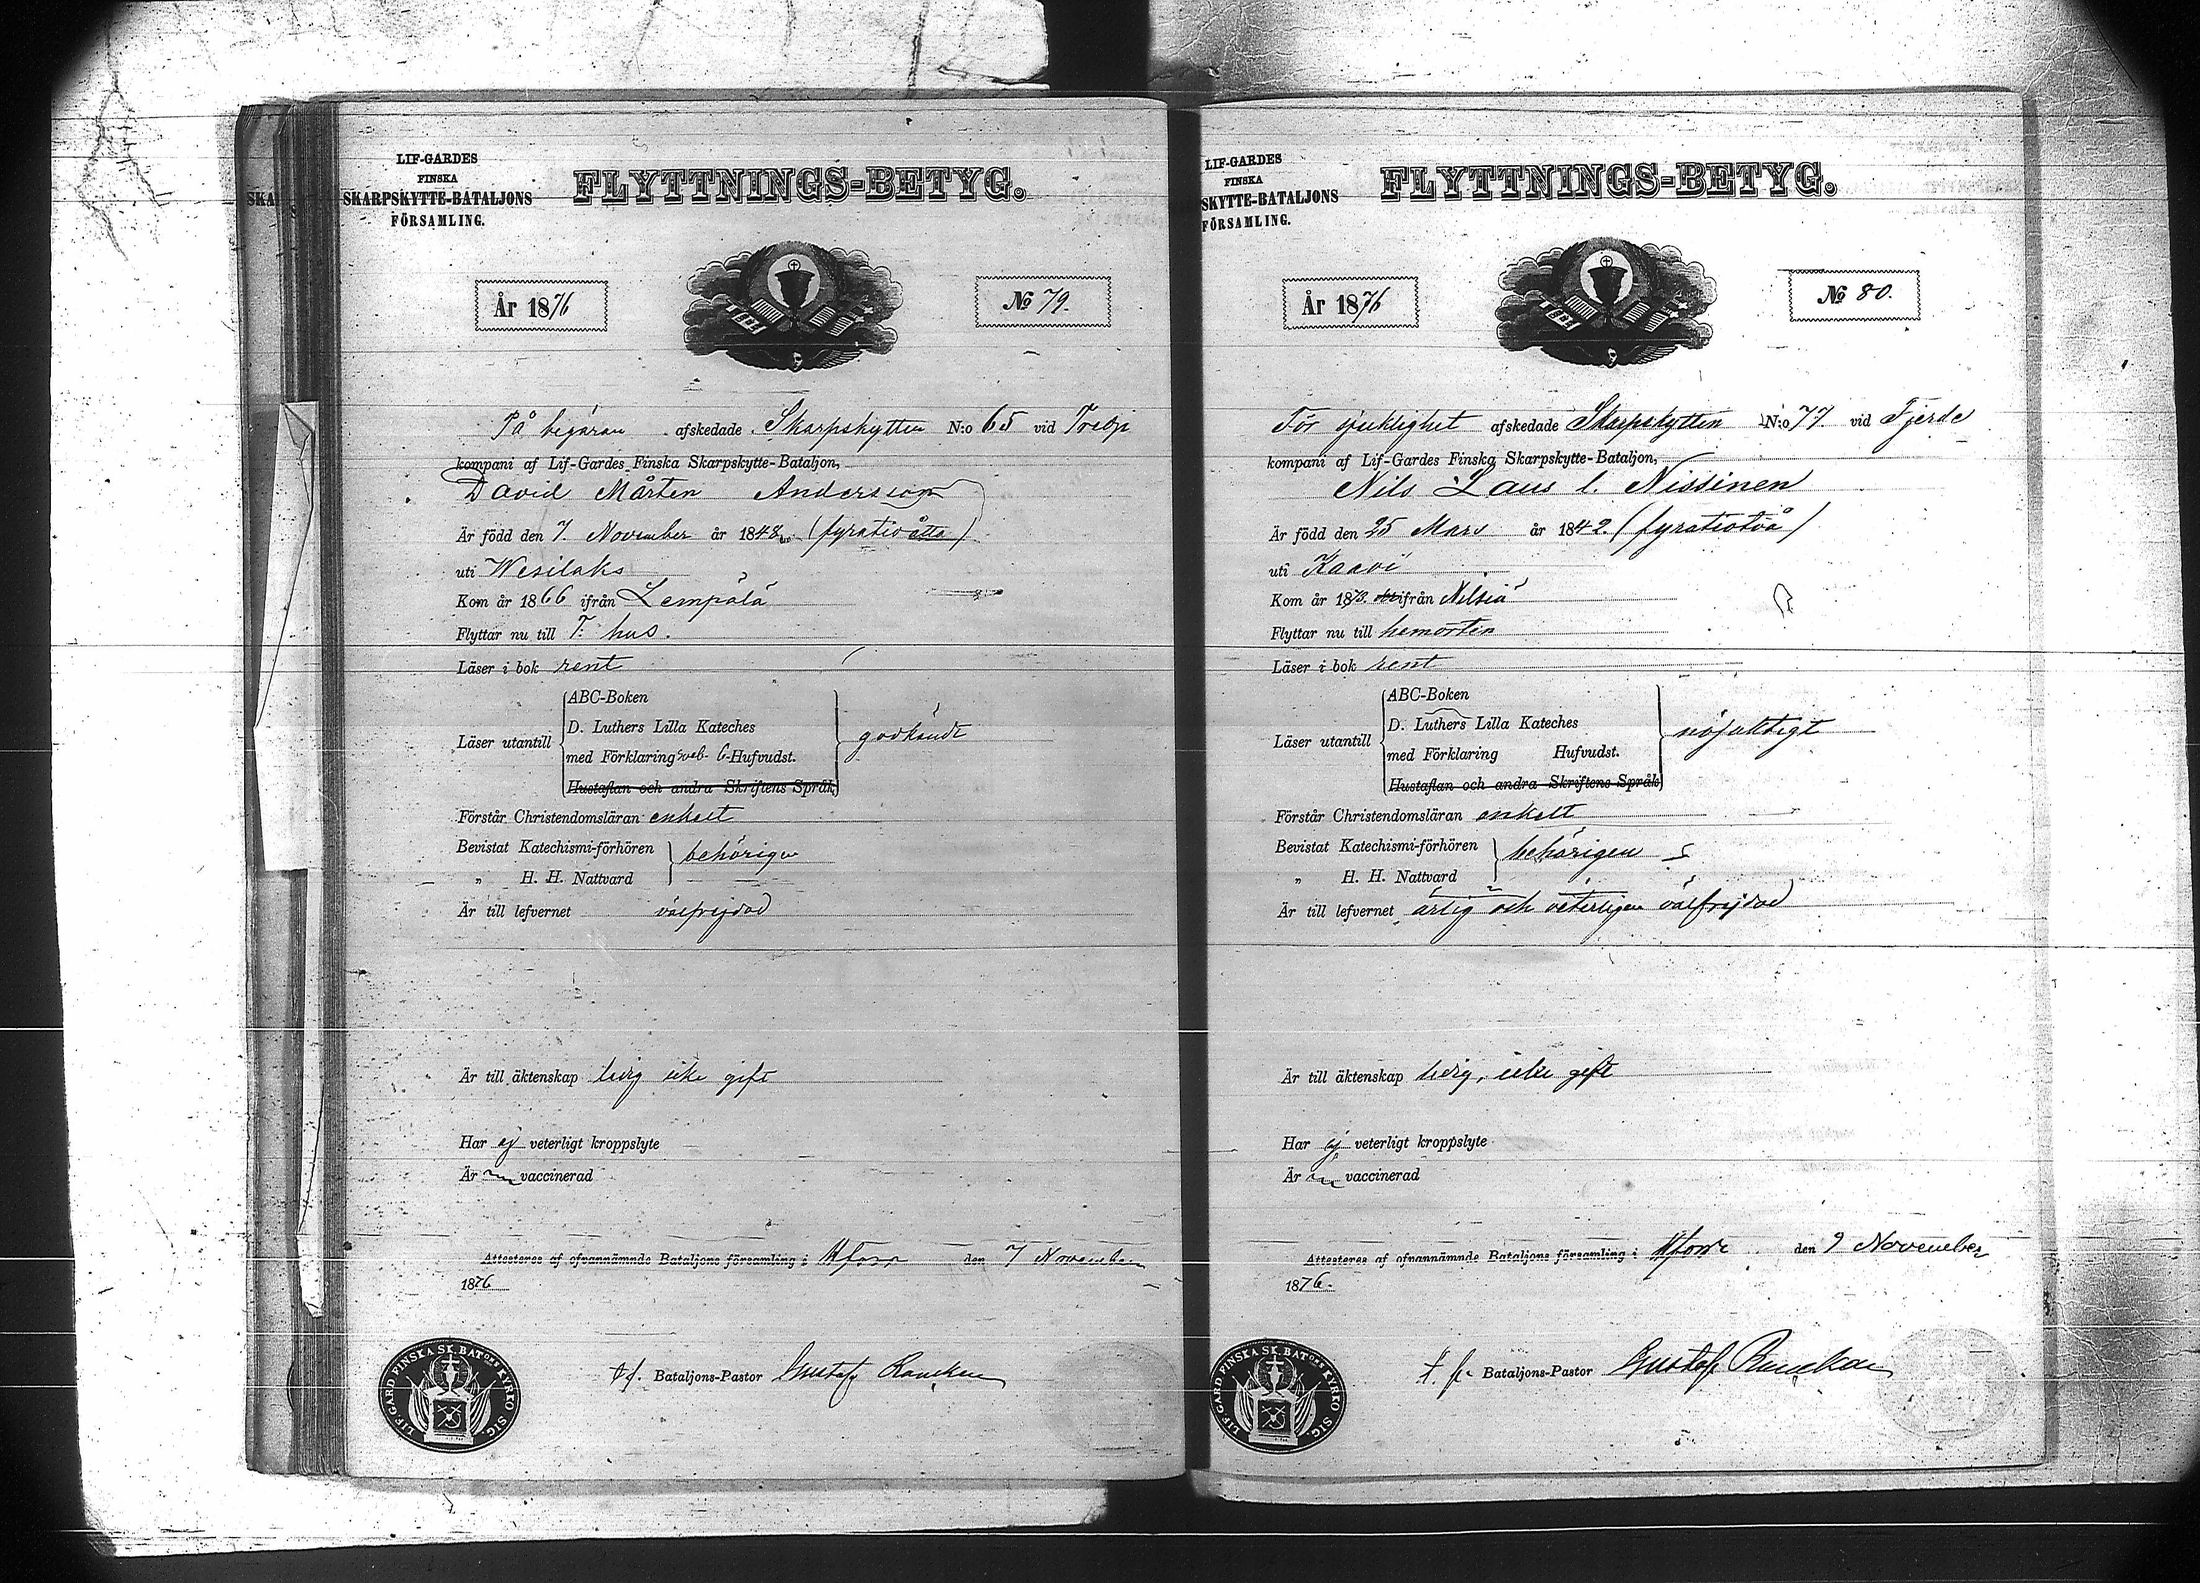 LIF-GARDES
FINSKA
SKARPSKYTTE-BATALJONS
FÖRSAMLING.
FLYTTNINGS-BETYG.
År 1876
№ 79.
På begäran afskedade Skarpskytten N:o 65 vid Tredje
kompani af Lif-Gardes Finska Skarpskytte-Bataljon,
David Mårten Andersson
Är född den 7. November år 1848 (fyratioåtta)
uti Wesilaks
Kom år 1866 ifrån Lempälä
Flyttar nu till T: hus.
Läser i bok rent
Läser utantill
ABC-Boken
D. Luthers Lilla Kateches
med Förklaring 6 Hufvudst.
Hustaflan och andra Skriftens Språk
godkändt
Förstår Christendomsläran enkelt
Bevistat Katechismi-förhören
„ H. H. Nattvard
behörigen
Är till lefvernet välfrejdad
Är till äktenskap ledig icke gift
Har ej veterligt kroppslyte
Är vaccinerad
Attesteras af ofvannämnde Bataljons församling i H:fors den 7 November
1876
t.f. Bataljons-Pastor Gustaf Rancken
LIF-GARD FINSKA SK. BAT:ONS KYRKO SIG.
LIF-GARDES
FINSKA
SKYTTE-BATALJONS
FÖRSAMLING.
FLYTTNINGS-BETYG.
År 1876
№ 80.
För sjuklighet afskedade Skarpskytten N:o 77. vid Fjerde
kompani af Lif-Gardes Finska Skarpskytte-Bataljon,
Nils Laus l. Nissinen
Är född den 25 Mars år 1842. (fyratiotvå)
uti Kaavi
Kom år 1873. ifrån Nilsiä
Flyttar nu till hemorten
Läser i bok rent
Läser utantill
ABC-Boken
D. Luthers Lilla Kateches
med Förklaring Hufvudst.
Hustaflan och andra Skriftens Språk
nöjaktigt
Förstår Christendomsläran enkelt
Bevistat Katechismi-förhören
„ H. H. Nattvard
behörigen
Är till lefvernet ärlig och veterligen välfrejdad
Är till äktenskap ledig, icke gift
Har ej veterligt kroppslyte
Är vaccinerad
Attesteras af ofvannämnde Bataljons församling i H:fors den 9 November
1876.
t. f. Bataljons-Pastor Gustaf Rancken
LIF-GARD FINSKA SK. BAT:ONS KYRKO SIG.